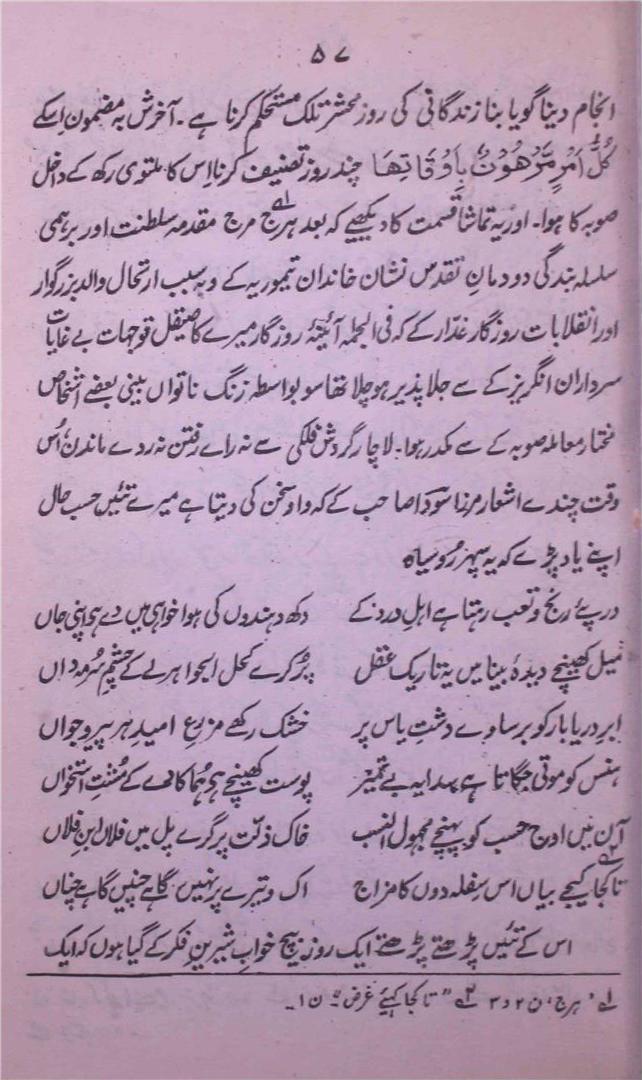 ۵۷
انجام دینا گویا بنا زندگانی کی روز محشر تلک مستحکم کرنا ہے۔ آخرش بہ مضمون اِسکے
کُلُّ اَمْرٍ مَّرْهُوْنٌ بِاَوْقَاتِهَا چند روز تصنیف کرنا اِس کا ملتوی رکھ کے داخل
صوبہ کا ہوا۔ اور یہ تماشا قسمت کا دیکھیے کہ بعد ہرج لے مرج مقدمہ سلطنت اور برہمی
سلسلہ بندگی دودمانِ تقدس نشان خاندان تیموریہ کے و بہ سبب ارتحال والد بزرگوار
اور انقلابات روزگار غدّار کے کہ فی الجملہ آئینۂ روزگار میرے کا صیقل توجہات بے غایات
سرداران انگریز کے سے جلا پذیر ہو چلا تھا سو بواسطہ زنگ ناتواں بینی بعضے اشخاص
مختار معاملہ صوبہ کے سے مکدر ہوا۔ لاچار گردش فلکی سے نہ راے رفتن نہ روے ماندن؛ اُس
وقت چندے اشعار مرزا سودا صاحب کے کہ داد سخن کی دیتا ہے میرے تئیں حسب حال
اپنے یاد پڑے کہ یہ سپہر رُوسیاہ
درپئے رنج و تعب رہتا ہے اہلِ درد کے دکھ دہندوں کی ہوا خواہی میں دے ہی اپنی جاں
میل کھینچے دیدۂ بینا میں یہ تاریک عقل پُر کرے کحل الجواہر لے کے چشمِ سُرمہ داں
ابرِ دریا بار کو برساوے دشتِ یاس پر خشک رکھے مزرعِ امیدِ ہر پیر و جواں
ہنس کو موتی چگاتا ہے سدا یہ بے تمیز پوست کھینچے ہی ہما کا دے کے مُشتِ استخواں
آن میں اوج حسب کو پہنچے مجہول النسب خاک ذلّت پر گرے پل میں فلاں ابنِ فلاں
تا کجا لے کیجے بیاں اس سِفلہ دوں کا مزاج اک وتیرے پر نہیں گاہے چنیں گاہے چناں
اس کے تئیں پڑھتے پڑھتے ایک روز بیچ خوابِ شیرینِ فکر کے گیا ہوں کہ ایک
لے ’ہرج‘، ن ۲ و ۳ لے ”تا کجا کہئے غرض“ ن ۱۔